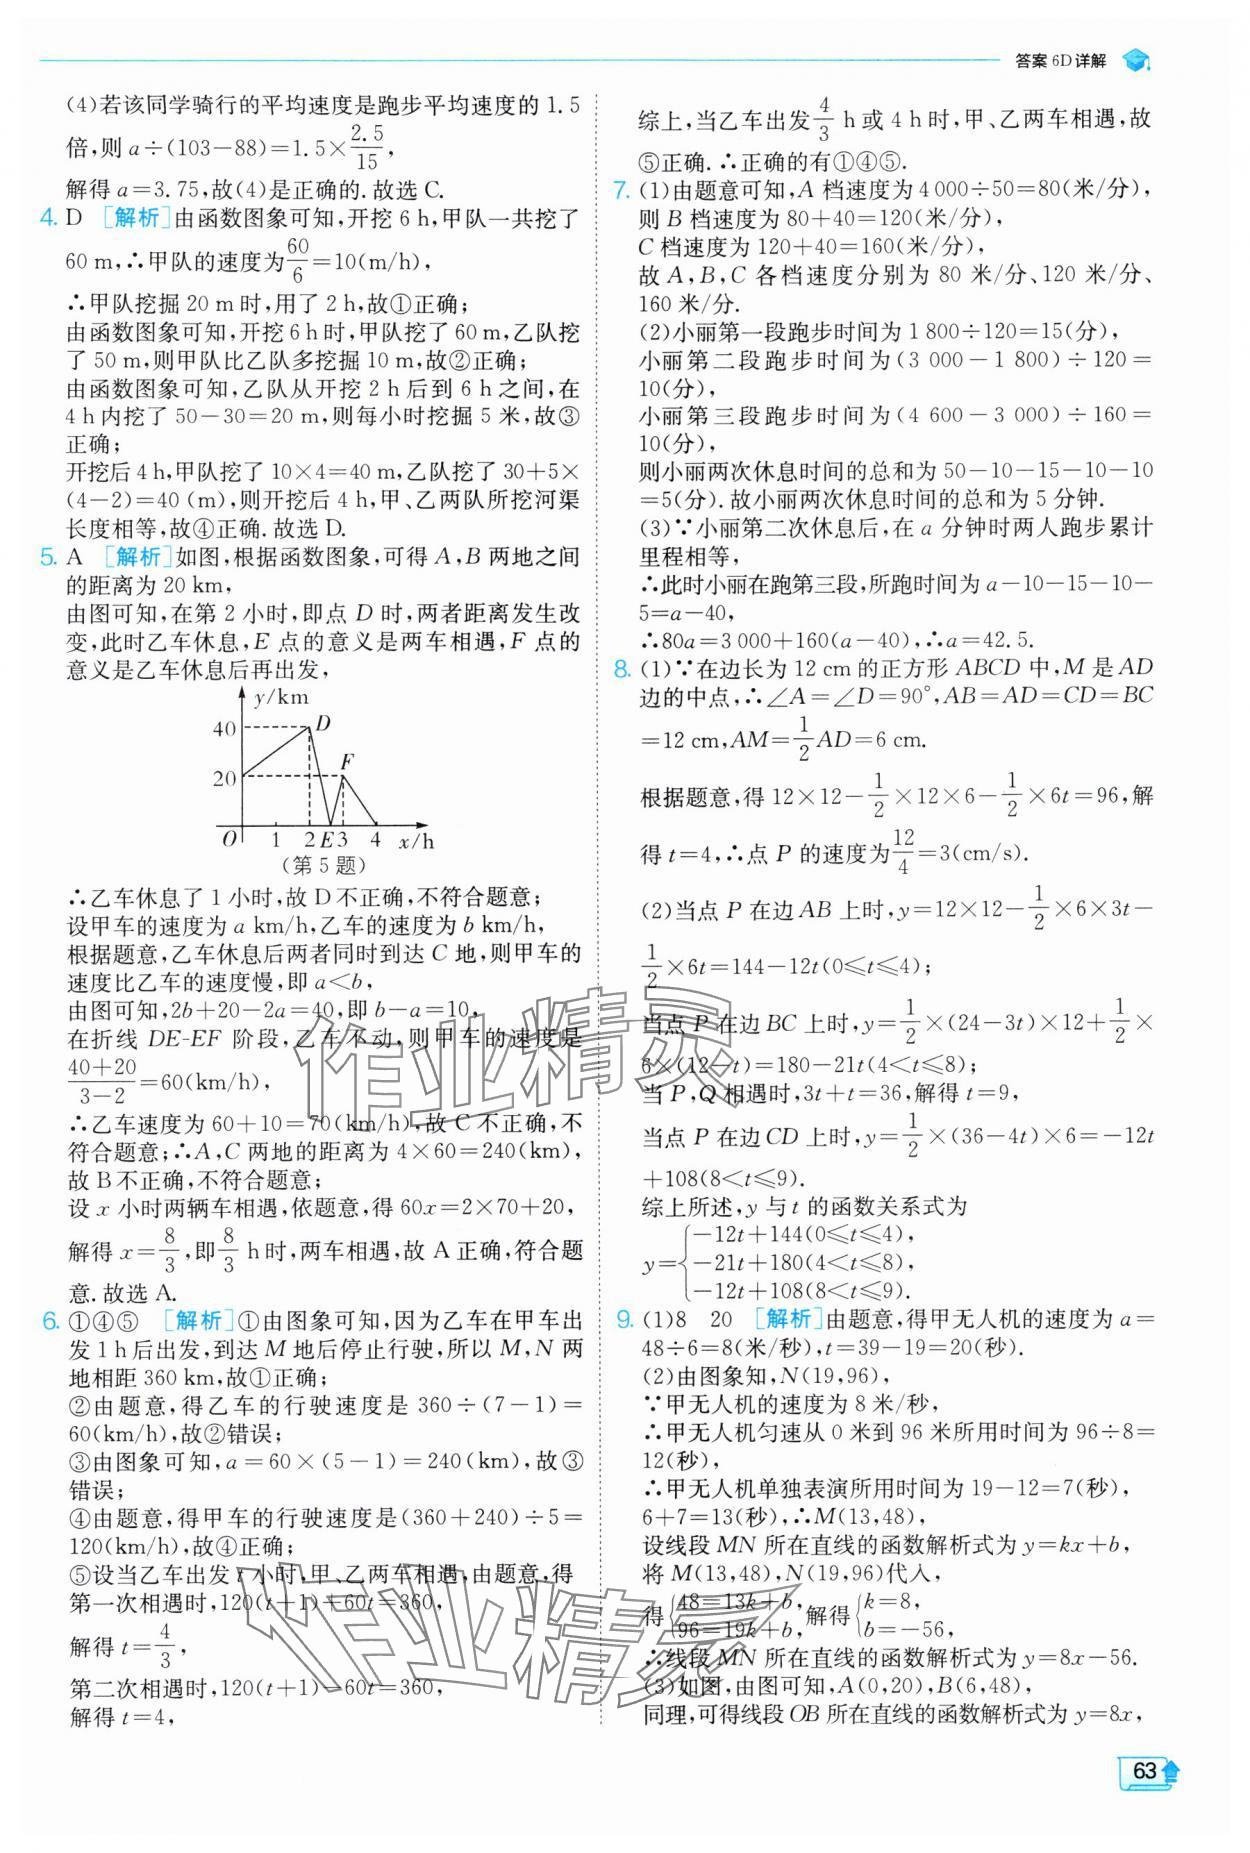 答案 6D详解
(4)若该同学骑行的平均速度是跑步平均速度的 1.5
倍,则 a÷(103-88)=1.5×2.5/15,
解得 a=3.75,故(4)是正确的.故选 C.
4. D [解析]由函数图象可知,开挖 6 h,甲队一共挖了
60 m,∴甲队的速度为60/6=10(m/h),
∴甲队挖掘 20 m 时,用了 2 h,故①正确;
由函数图象可知,开挖 6 h 时,甲队挖了 60 m,乙队挖
了 50 m,则甲队比乙队多挖掘 10 m,故②正确;
由函数图象可知,乙队从开挖 2 h 后到 6 h 之间,在
4 h 内挖了 50-30=20 m,则每小时挖掘 5 米,故③
正确;
开挖后 4 h,甲队挖了 10×4=40 m,乙队挖了 30+5×
(4-2)=40 (m),则开挖后 4 h,甲、乙两队所挖河渠
长度相等,故④正确.故选 D.
5. A [解析]如图,根据函数图象,可得 A,B 两地之间
的距离为 20 km,
由图可知,在第 2 小时,即点 D 时,两者距离发生改
变,此时乙车休息,E 点的意义是两车相遇,F 点的
意义是乙车休息后再出发,
y/km
40
D
F
20
O 1 2 E 3 4 x/h
(第 5 题)
∴乙车休息了 1 小时,故 D 不正确,不符合题意;
设甲车的速度为 a km/h,乙车的速度为 b km/h,
根据题意,乙车休息后两者同时到达 C 地,则甲车的
速度比乙车的速度慢,即 a<b,
由图可知,2b+20-2a=40,即 b-a=10,
在折线 DE-EF 阶段,乙车不动,则甲车的速度是
(40+20)/(3-2)=60(km/h),
∴乙车速度为 60+10=70(km/h),故 C 不正确,不
符合题意;∴A,C 两地的距离为 4×60=240(km),
故 B 不正确,不符合题意;
设 x 小时两辆车相遇,依题意,得 60x=2×70+20,
解得 x=8/3,即8/3 h时,两车相遇,故 A 正确,符合题
意.故选 A.
6. ①④⑤ [解析]①由图象可知,因为乙车在甲车出
发 1 h 后出发,到达 M 地后停止行驶,所以 M,N 两
地相距 360 km,故①正确;
②由题意,得乙车的行驶速度是 360÷(7-1)=
60(km/h),故②错误;
③由图象可知,a=60×(5-1)=240(km),故③
错误;
④由题意,得甲车的行驶速度是(360+240)÷5=
120(km/h),故④正确;
⑤设当乙车出发 t 小时,甲、乙两车相遇,由题意,得
第一次相遇时,120(t+1)+60t=360,
解得 t=4/3,
第二次相遇时,120(t+1)-60t=360,
解得 t=4,
综上,当乙车出发4/3 h 或 4 h 时,甲、乙两车相遇,故
⑤正确.∴正确的有①④⑤.
7. (1)由题意可知,A 档速度为 4 000÷50=80(米/分),
则 B 档速度为 80+40=120(米/分),
C 档速度为 120+40=160(米/分),
故 A,B,C 各档速度分别为 80 米/分、120 米/分、
160 米/分.
(2)小丽第一段跑步时间为 1 800÷120=15(分),
小丽第二段跑步时间为(3 000-1 800)÷120=
10(分),
小丽第三段跑步时间为(4 600-3 000)÷160=
10(分),
则小丽两次休息时间的总和为 50-10-15-10-10
=5(分).故小丽两次休息时间的总和为 5 分钟.
(3)∵小丽第二次休息后,在 a 分钟时两人跑步累计
里程相等,
∴此时小丽在跑第三段,所跑时间为 a-10-15-10-
5=a-40,
∴80a=3 000+160(a-40),∴a=42.5.
8. (1)∵在边长为 12 cm 的正方形 ABCD 中,M 是 AD
边的中点,∴∠A=∠D=90°,AB=AD=CD=BC
=12 cm,AM=1/2AD=6 cm.
根据题意,得 12×12-1/2×12×6-1/2×6t=96,解
得 t=4,∴点 P 的速度为12/4=3(cm/s).
(2)当点 P 在边AB 上时,y=12×12-1/2×6×3t-
1/2×6t=144-12t(0≤t≤4);
当点 P 在边 BC 上时,y=1/2×(24-3t)×12+1/2×
6×(12-t)=180-21t(4<t≤8);
当 P,Q 相遇时,3t+t=36,解得 t=9,
当点 P 在边CD 上时,y=1/2×(36-4t)×6=-12t
+108(8<t≤9).
综上所述,y 与 t 的函数关系式为
y={-12t+144(0≤t≤4),
-21t+180(4<t≤8),
-12t+108(8<t≤9).
9. (1)8 20 [解析]由题意,得甲无人机的速度为 a=
48÷6=8(米/秒),t=39-19=20(秒).
(2)由图象知,N(19,96),
∵甲无人机的速度为 8 米/秒,
∴甲无人机匀速从 0 米到 96 米所用时间为 96÷8=
12(秒),
∴甲无人机单独表演所用时间为 19-12=7(秒),
6+7=13(秒),∴M(13,48),
设线段 MN 所在直线的函数解析式为 y=kx+b,
将 M(13,48),N(19,96)代入,
得{48=13k+b, 96=19k+b, 解得{k=8, b=-56,
∴线段 MN 所在直线的函数解析式为 y=8x-56.
(3)如图,由图可知,A(0,20),B(6,48),
同理,可得线段 OB 所在直线的函数解析式为 y=8x,
作业精灵
作业精灵
63